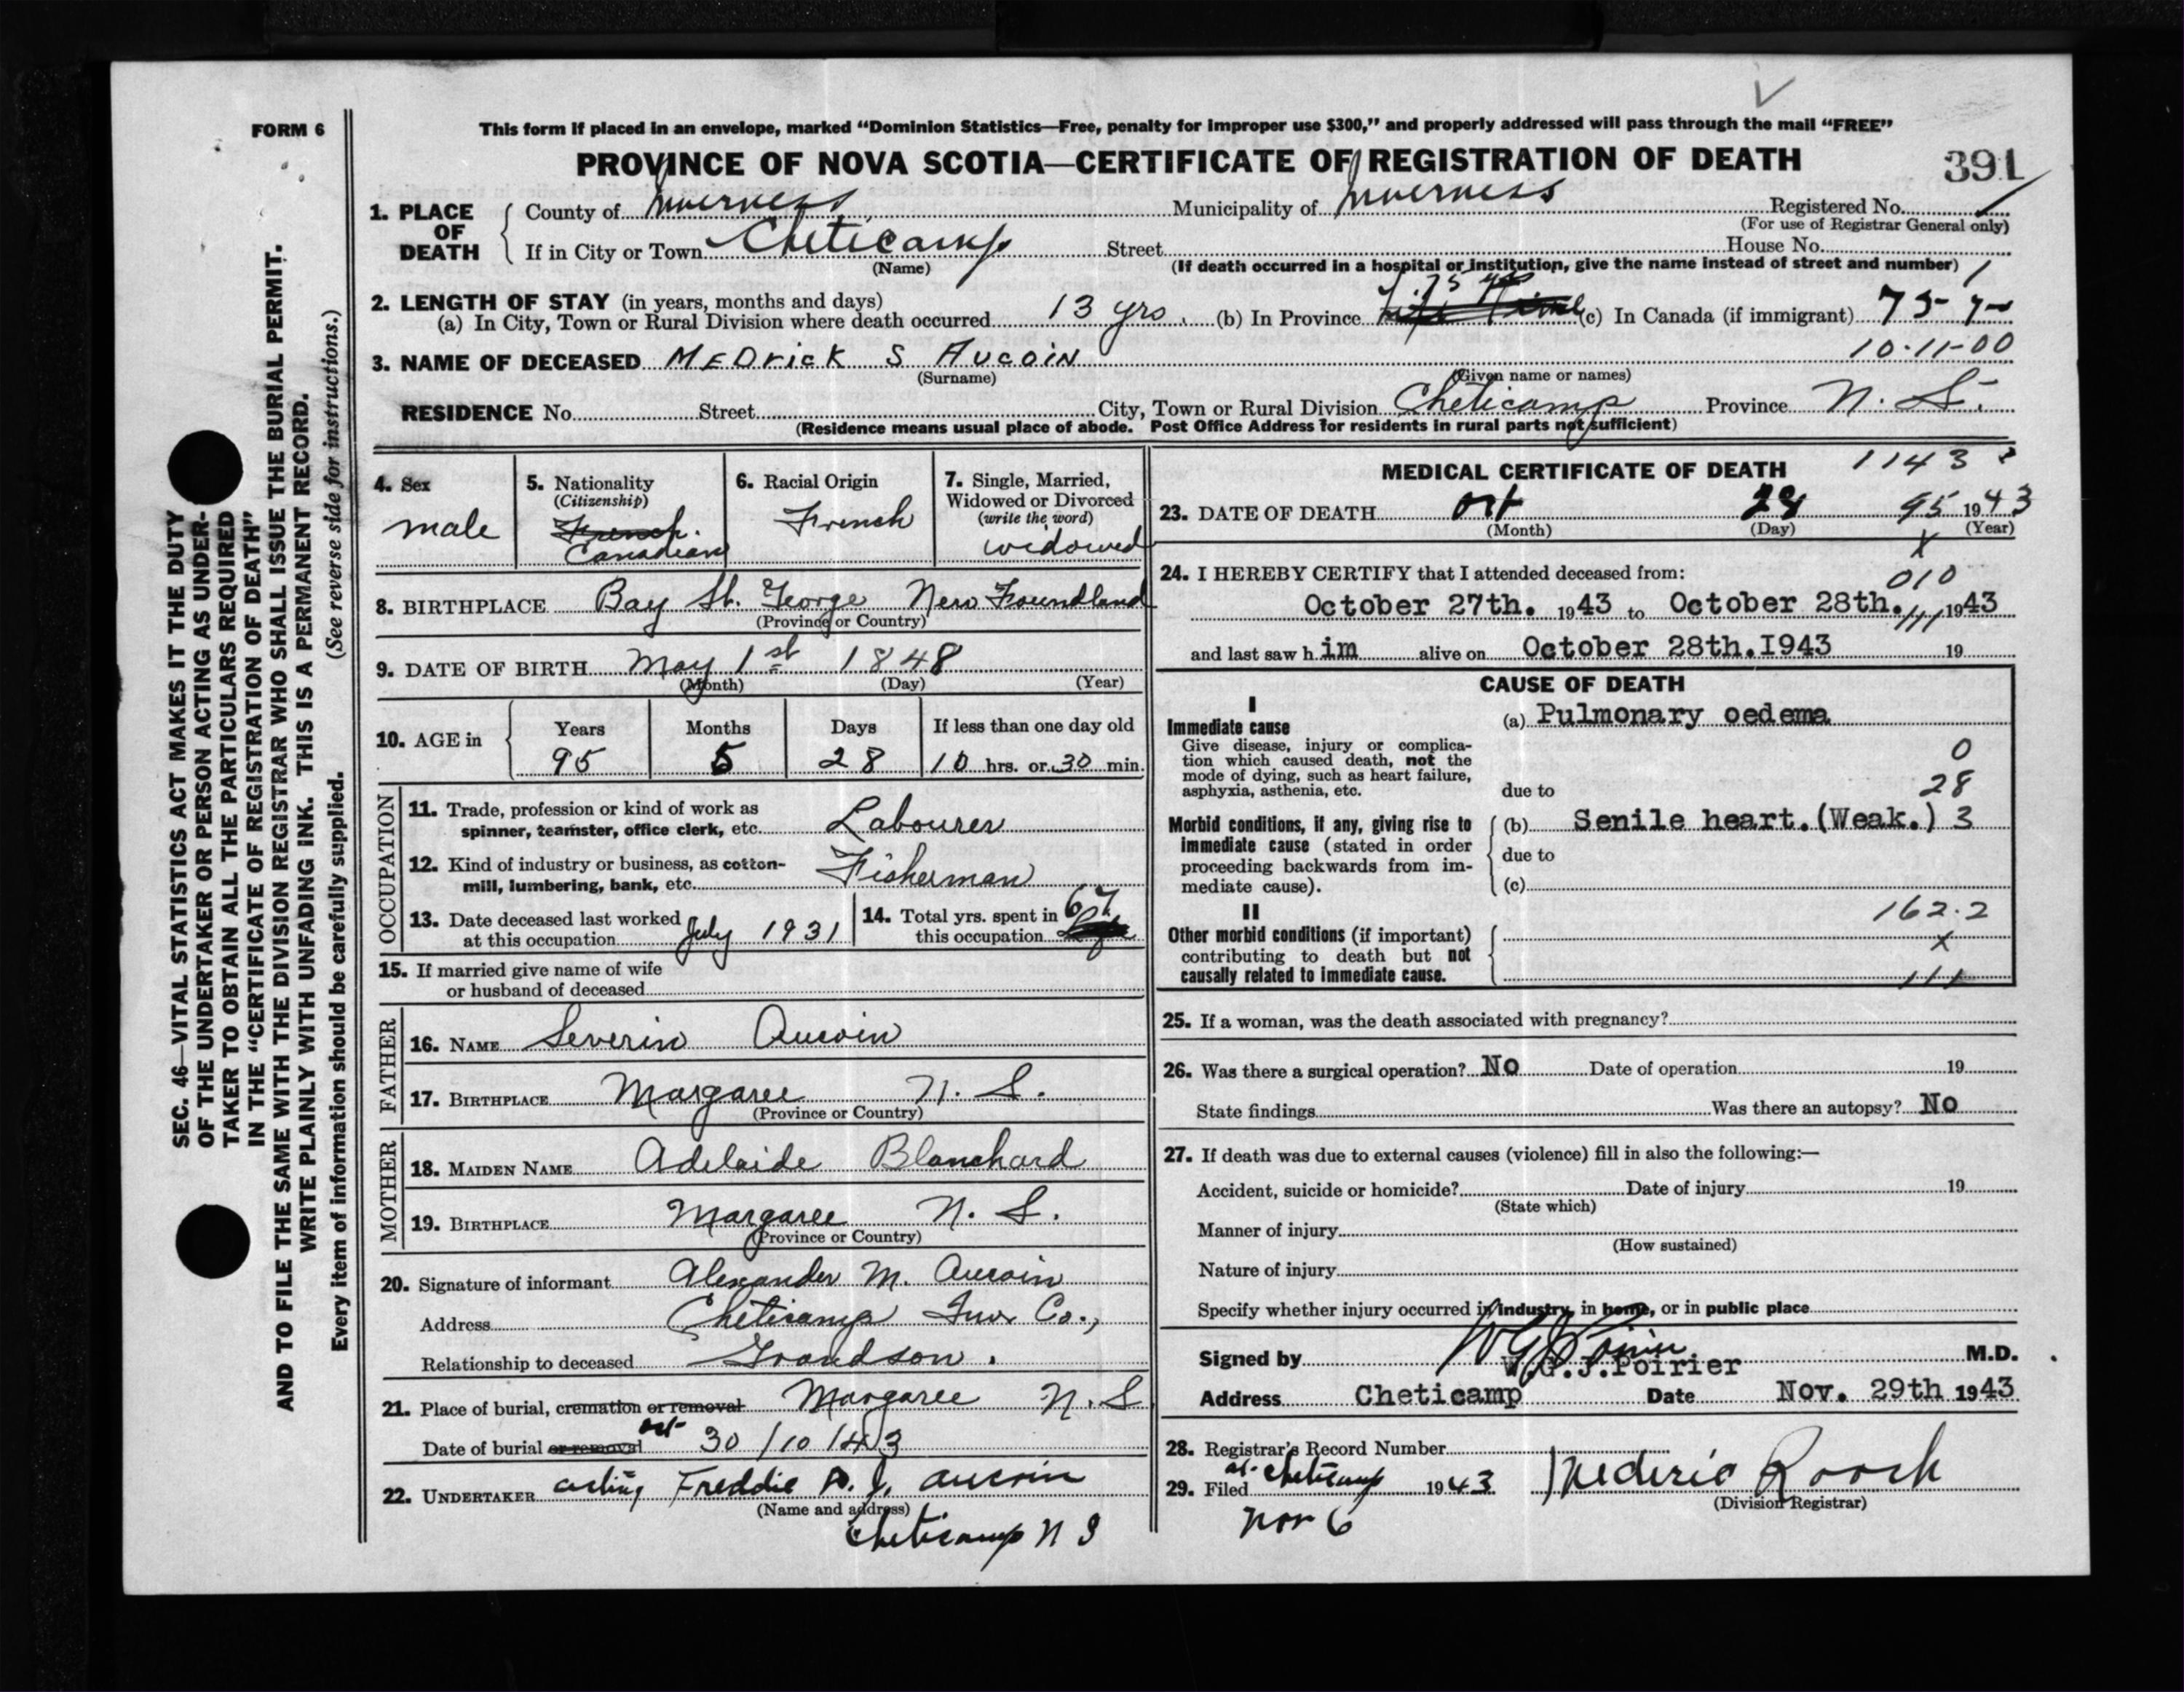 FORM 6
This form if placed in an envelope, marked “Dominion Statistics—Free, penalty for improper use $300,” and properly addressed will pass through the mail “FREE”
PROVINCE OF NOVA SCOTIA—CERTIFICATE OF REGISTRATION OF DEATH
391
1. PLACE OF DEATH
County of Inverness Municipality of Inverness Registered No.
(For use of Registrar General only)
If in City or Town Cheticamp Street House No.
(Name)
(If death occurred in a hospital or institution, give the name instead of street and number)
2. LENGTH OF STAY (in years, months and days)
(a) In City, Town or Rural Division where death occurred 13 yrs. (b) In Province 75 yrs (c) In Canada (if immigrant) 75 y
10-11-00
3. NAME OF DECEASED MEDRICK S AUCOIN
(Surname) (Given name or names)
RESIDENCE No. Street City, Town or Rural Division Cheticamp Province N. S.
(Residence means usual place of abode. Post Office Address for residents in rural parts not sufficient)
4. Sex
male
5. Nationality
(Citizenship)
French
Canadian
6. Racial Origin
French
7. Single, Married, Widowed or Divorced
(write the word)
widowed
8. BIRTHPLACE Bay St. George New Foundland
(Province or Country)
9. DATE OF BIRTH May 1st 1848
(Month) (Day) (Year)
10. AGE in Years Months Days If less than one day old
95 5 28 10 hrs. or 30 min.
OCCUPATION
11. Trade, profession or kind of work as
spinner, teamster, office clerk, etc. Labourer
12. Kind of industry or business, as cotton-
mill, lumbering, bank, etc. Fisherman
13. Date deceased last worked
at this occupation July 1931
14. Total yrs. spent in
this occupation 67
15. If married give name of wife
or husband of deceased
FATHER
16. NAME Severin Aucoin
17. BIRTHPLACE Margaree N. S.
(Province or Country)
MOTHER
18. MAIDEN NAME Adelaide Blanchard
19. BIRTHPLACE Margaree N. S.
(Province or Country)
20. Signature of informant Alexander M. Aucoin
Address Cheticamp Inv. Co.,
Relationship to deceased Grandson.
21. Place of burial, cremation or removal Margaree N. S
Date of burial or removal oct 30/10/43
22. UNDERTAKER acting Freddie A. J. Aucoin
(Name and address)
Cheticamp N S
MEDICAL CERTIFICATE OF DEATH
1143
23. DATE OF DEATH Oct 28 95 1943
(Month) (Day) (Year)
X
24. I HEREBY CERTIFY that I attended deceased from:
010
October 27th. 1943 to October 28th. 1943
111
and last saw h im alive on October 28th.I943 19
CAUSE OF DEATH
I
Immediate cause
Give disease, injury or complica-
tion which caused death, not the
mode of dying, such as heart failure,
asphyxia, asthenia, etc.
(a) Pulmonary oedema
0
28
due to
Morbid conditions, if any, giving rise to
immediate cause (stated in order
proceeding backwards from im-
mediate cause).
(b) Senile heart.(Weak.) 3
due to
(c)
II
162.2
Other morbid conditions (if important)
contributing to death but not
causally related to immediate cause.
X
111
25. If a woman, was the death associated with pregnancy?
26. Was there a surgical operation? No Date of operation 19
State findings Was there an autopsy? No
27. If death was due to external causes (violence) fill in also the following:—
Accident, suicide or homicide? Date of injury 19
(State which)
Manner of injury
(How sustained)
Nature of injury
Specify whether injury occurred in industry, in home, or in public place
Signed by W G J Poirier
W.G.J.Poirier M.D.
Address Cheticamp Date Nov. 29th 1943
28. Registrar’s Record Number
29. Filed at Cheticamp 1943
Nov 6
(Division Registrar)
SEC. 46—VITAL STATISTICS ACT MAKES IT THE DUTY
OF THE UNDERTAKER OR PERSON ACTING AS UNDER-
TAKER TO OBTAIN ALL THE PARTICULARS REQUIRED
IN THE “CERTIFICATE OF REGISTRATION OF DEATH”
AND TO FILE THE SAME WITH THE DIVISION REGISTRAR WHO SHALL ISSUE THE BURIAL PERMIT.
WRITE PLAINLY WITH UNFADING INK. THIS IS A PERMANENT RECORD.
Every item of information should be carefully supplied. (See reverse side for instructions.)